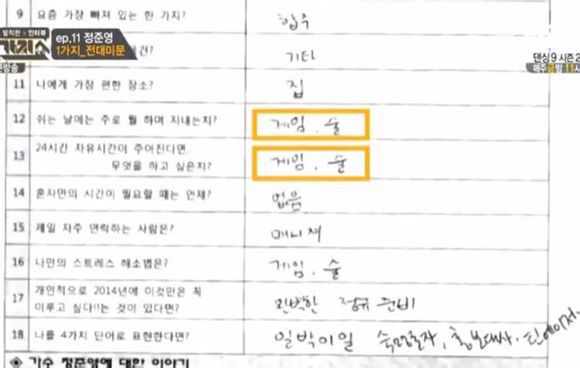 9 요즘 가장 빠져 있는 한 가지? 합주
ep.11 정준영
1가지_전대미문
기타
댄싱9 시즌2
11 나에게 가장 편한 장소? 집
12 쉬는 날에는 주로 뭘 하며 지내는지? 게임, 술
13 24시간 자유시간이 주어진다면,
무엇을 하고 싶은지? 게임, 술
14 혼자만의 시간이 필요할 때는 언제? 없음
15 제일 자주 연락하는 사람은? 매니져
16 나만의 스트레스 해소법은? 게임, 술
17 개인적으로 2014년에 이것만은 꼭
이루고 싶다!!는 것이 있다면? 완벽한 정규 준비
18 나를 4가지 단어로 표현한다면? 일박이일 홍보대사,
※ 가수 정준영에 대한 이야기